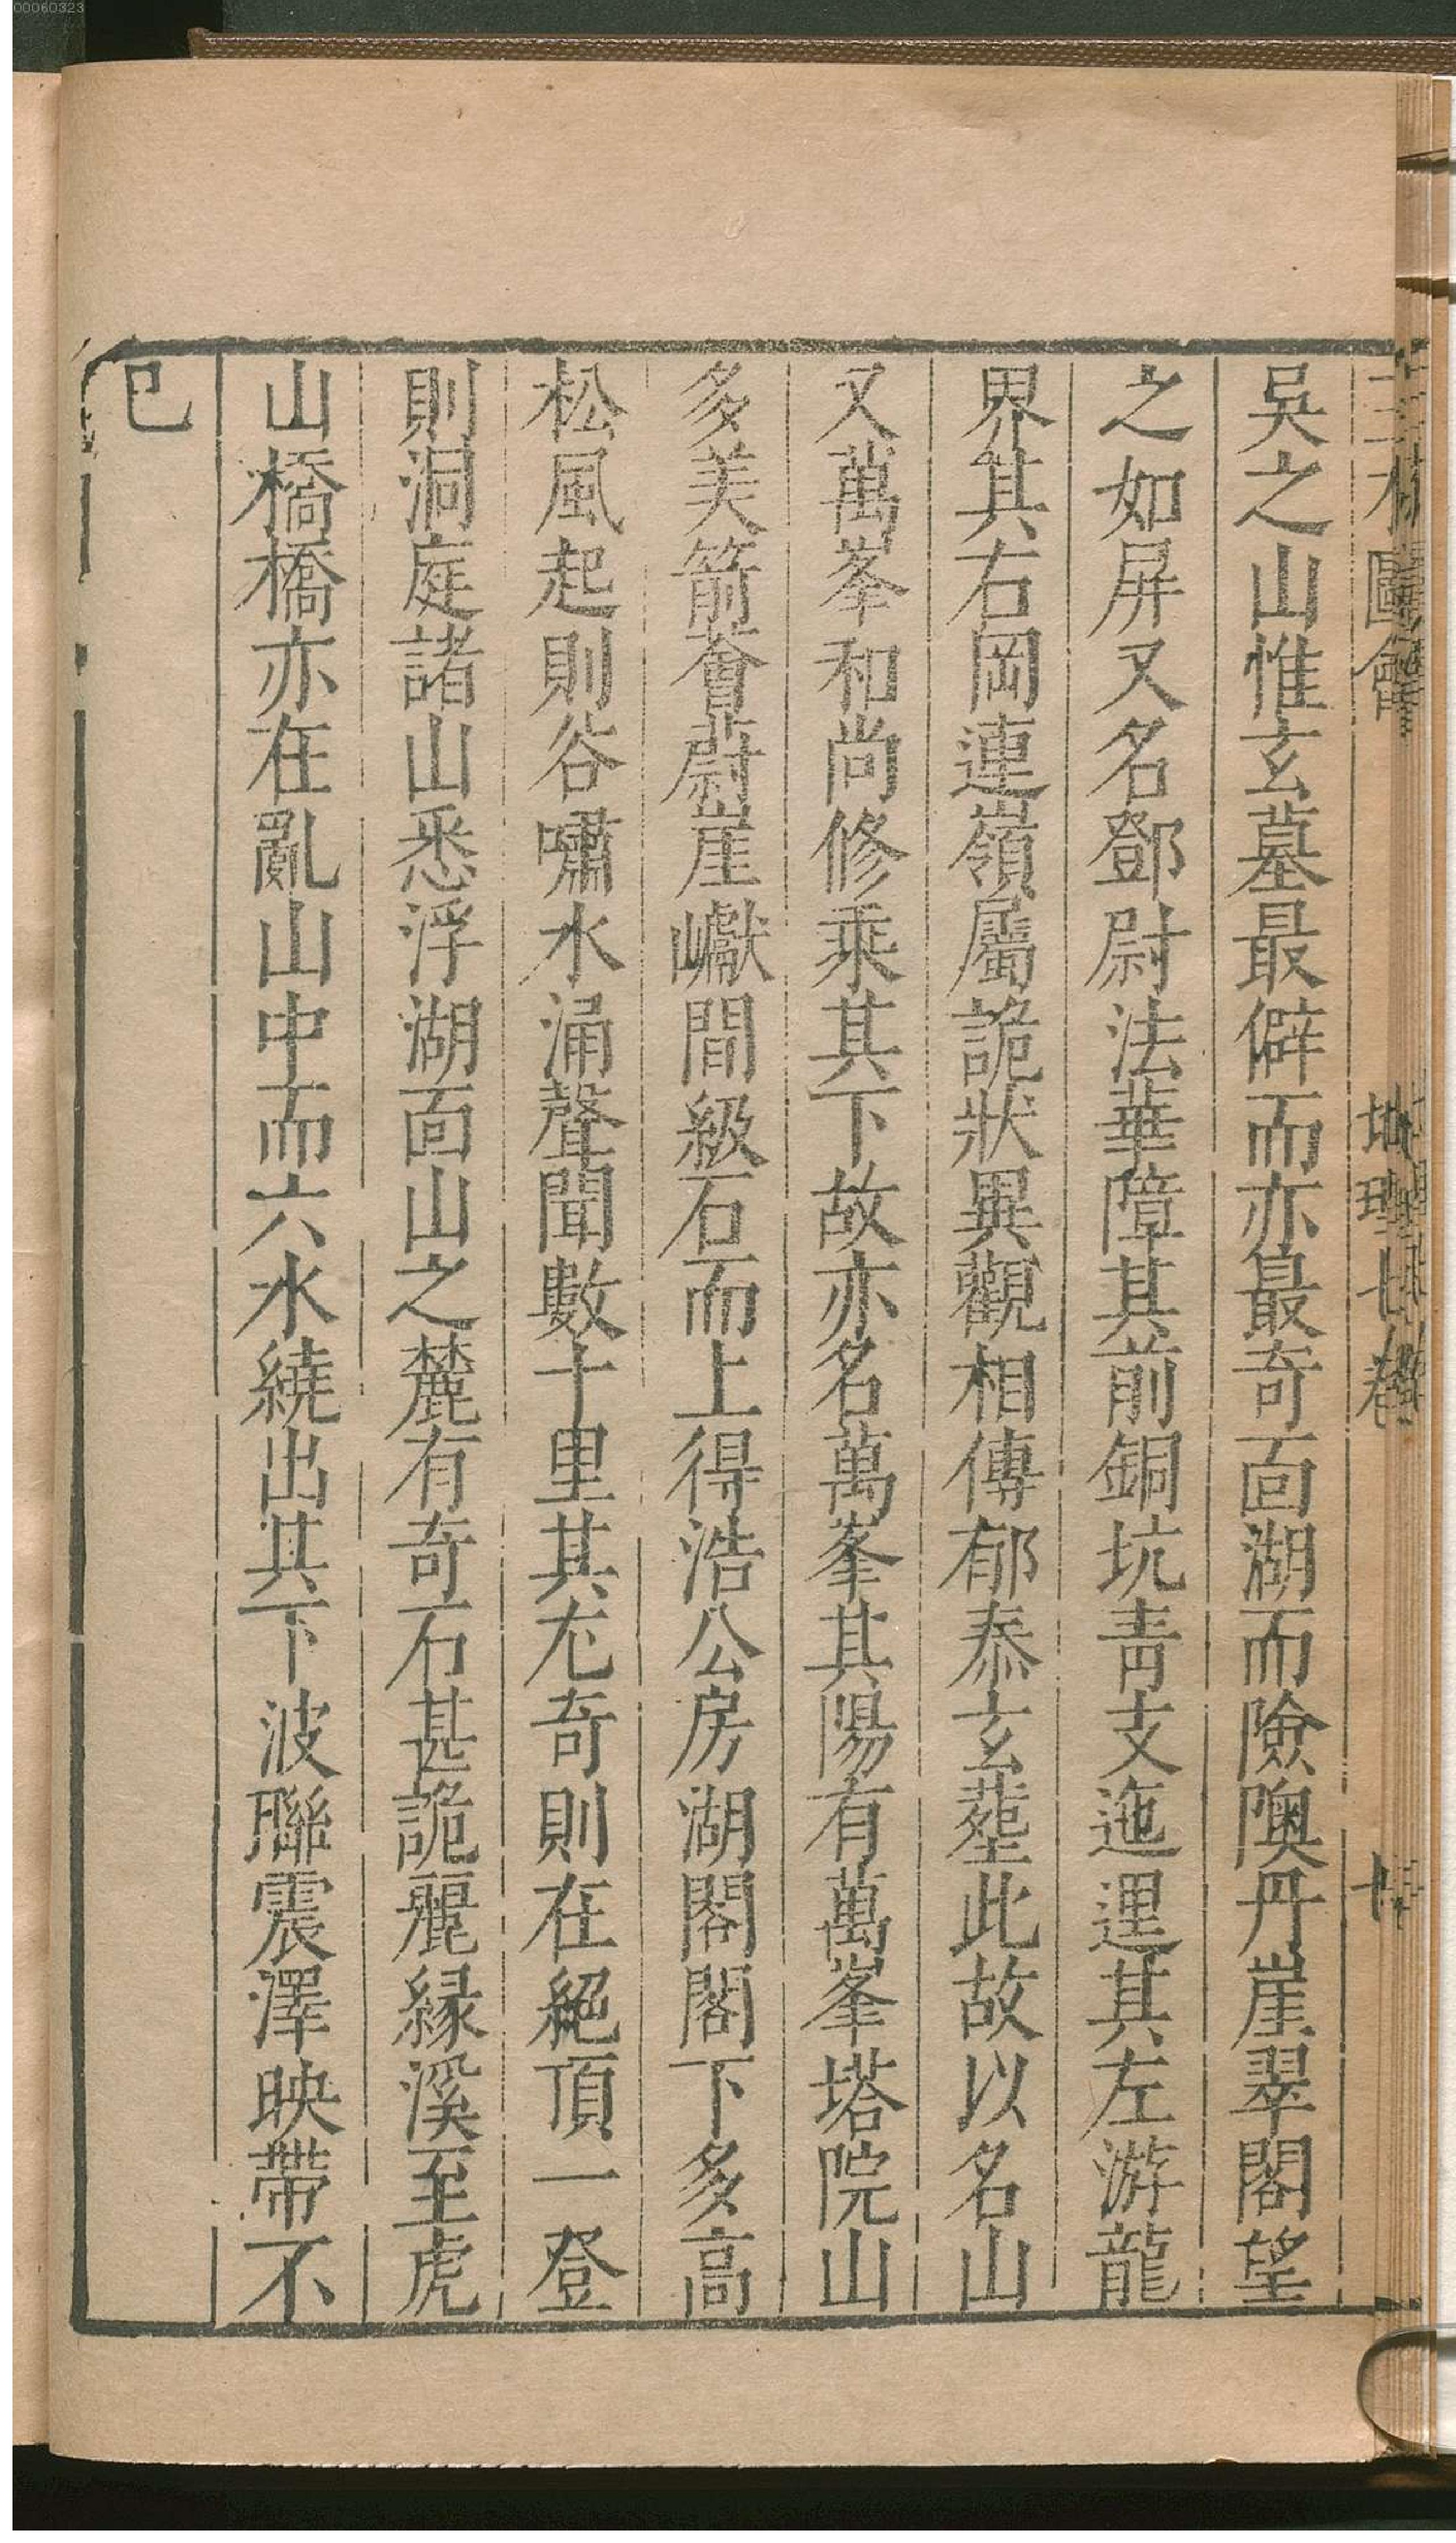 00060323
三才圖會 地理七卷 十
吳之山惟玄墓最僻而亦最奇面湖而險隩丹崖翠閣望
之如屏又名鄧尉法華障其前銅坑青支迤邐其左游龍
界其右岡連嶺屬詭狀異觀相傳郁泰玄塟此故以名山
又萬峯和尚修乘其下故亦名萬峯其陽有萬峯塔院山
多美箭薈蔚崖巘間級石而上得浩公房湖閣閣下多高
松風起則谷嘯水涌聲聞數十里其尢奇則在絕頂一登
則洞庭諸山悉浮湖面山之麓有奇石甚詭麗緣溪至虎
山橋橋亦在亂山中而六水繞出其下波聯震澤映帶不
已